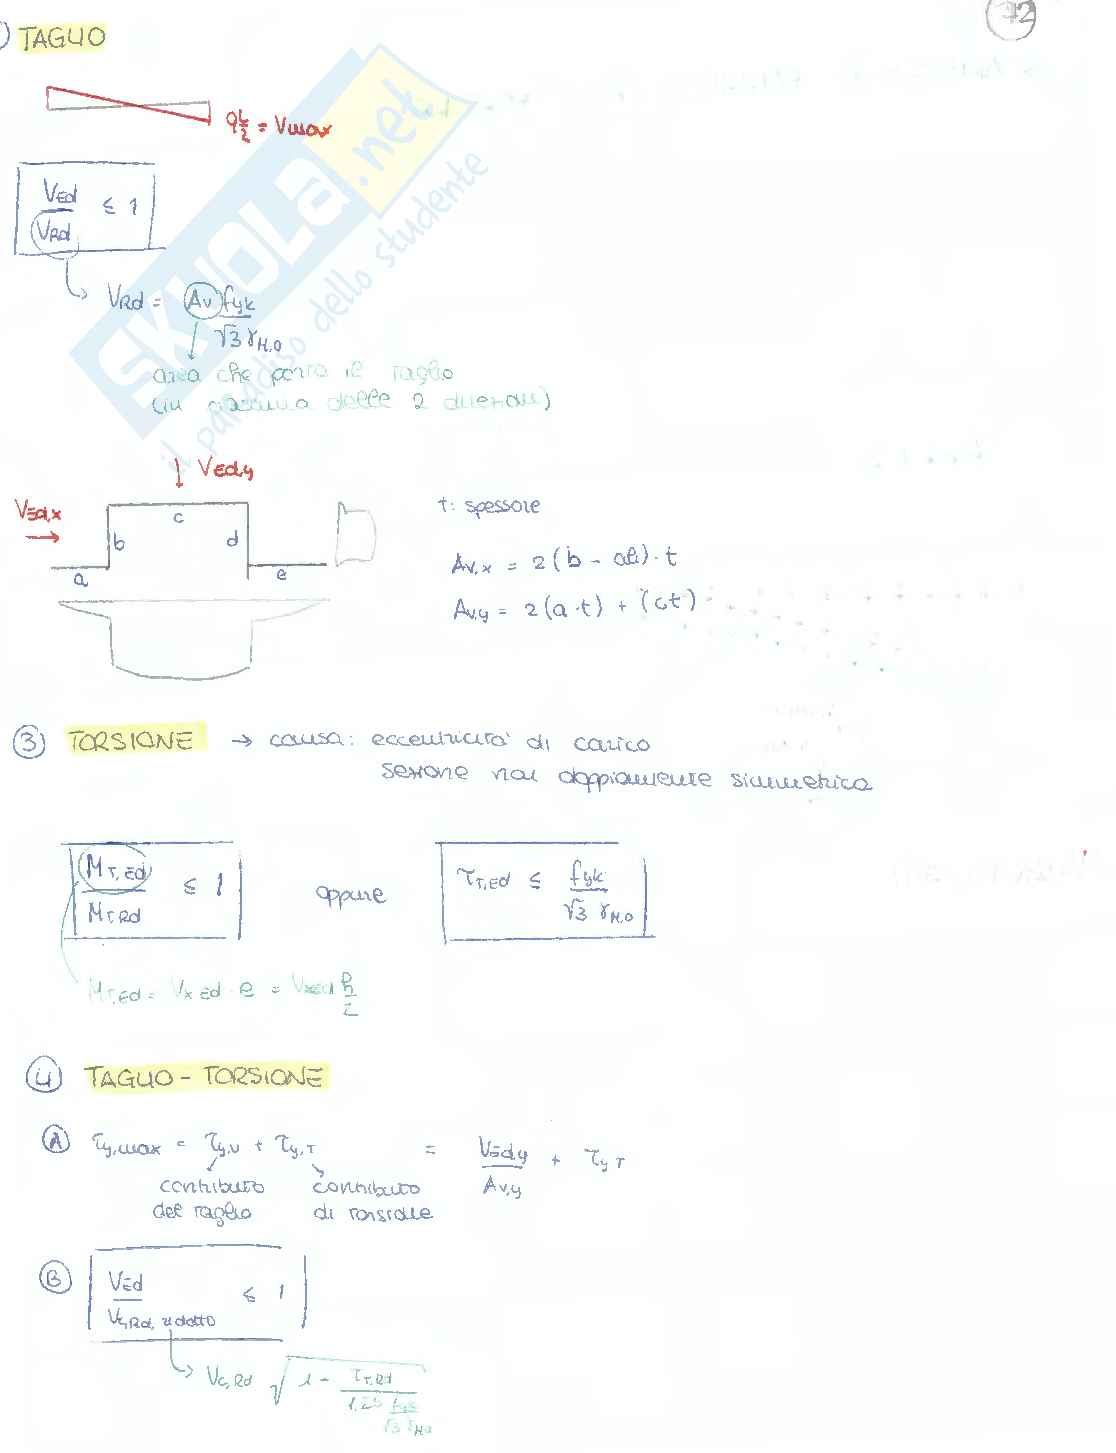 72
) TAGLIO
q L/2 = Vmax
VEd / VRd ≤ 1
VRd = Av fyk / √3 γM,0
area che porta il taglio
(in ciascuna delle 2 direzioni)
VEd,y
VEd,x
a b c d e
t: spessore
Av,x = 2(b - ) · t
Av,y = 2(a·t) + (ct)
③ TORSIONE → causa: eccentricità di carico
sezione non doppiamente simmetrica
MT,Ed / MT,Rd ≤ 1 oppure τT,Ed ≤ fyk / √3 γM,0
MT,Ed = Vx Ed · e = Vx Ed h/2
④ TAGLIO - TORSIONE
Ⓐ τy,max = τy,v + τy,T = VEd,y / Av,y + τy,T
contributo del taglio
contributo di torsione
Ⓑ VEd / Vc,Rd, ridotto ≤ 1
Vc,Rd √ 1 - τT,Rd / 1,25 fyk / √3 γM0
SKUOLA.net
il paradiso dello studente